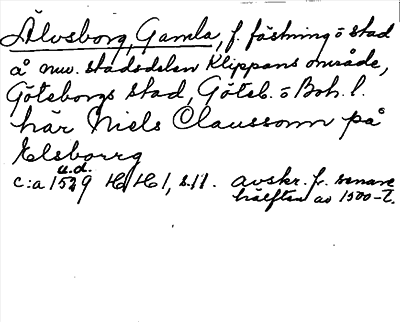 Älvsborg, Gamla, f. fästning o stad
å nuv. stadsdelen Klippans område,
Göteborgs stad, Göteb. o Boh. l.
här Niels Claussonn på
Elsborrg
u.d.
c:a 1529 HH 1, s. 11. avskr. fr. senare
hälften av 1500-t.